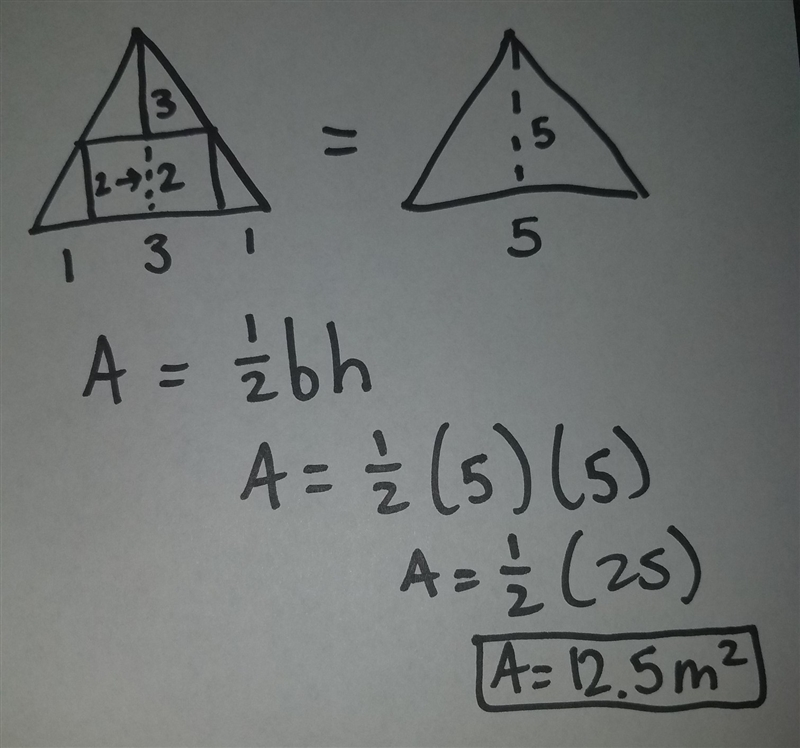 3
= 5
2→ 2
1 3 1
5
A = 1/2 bh
A = 1/2 (5)(5)
A = 1/2 (25)
A = 12.5m²